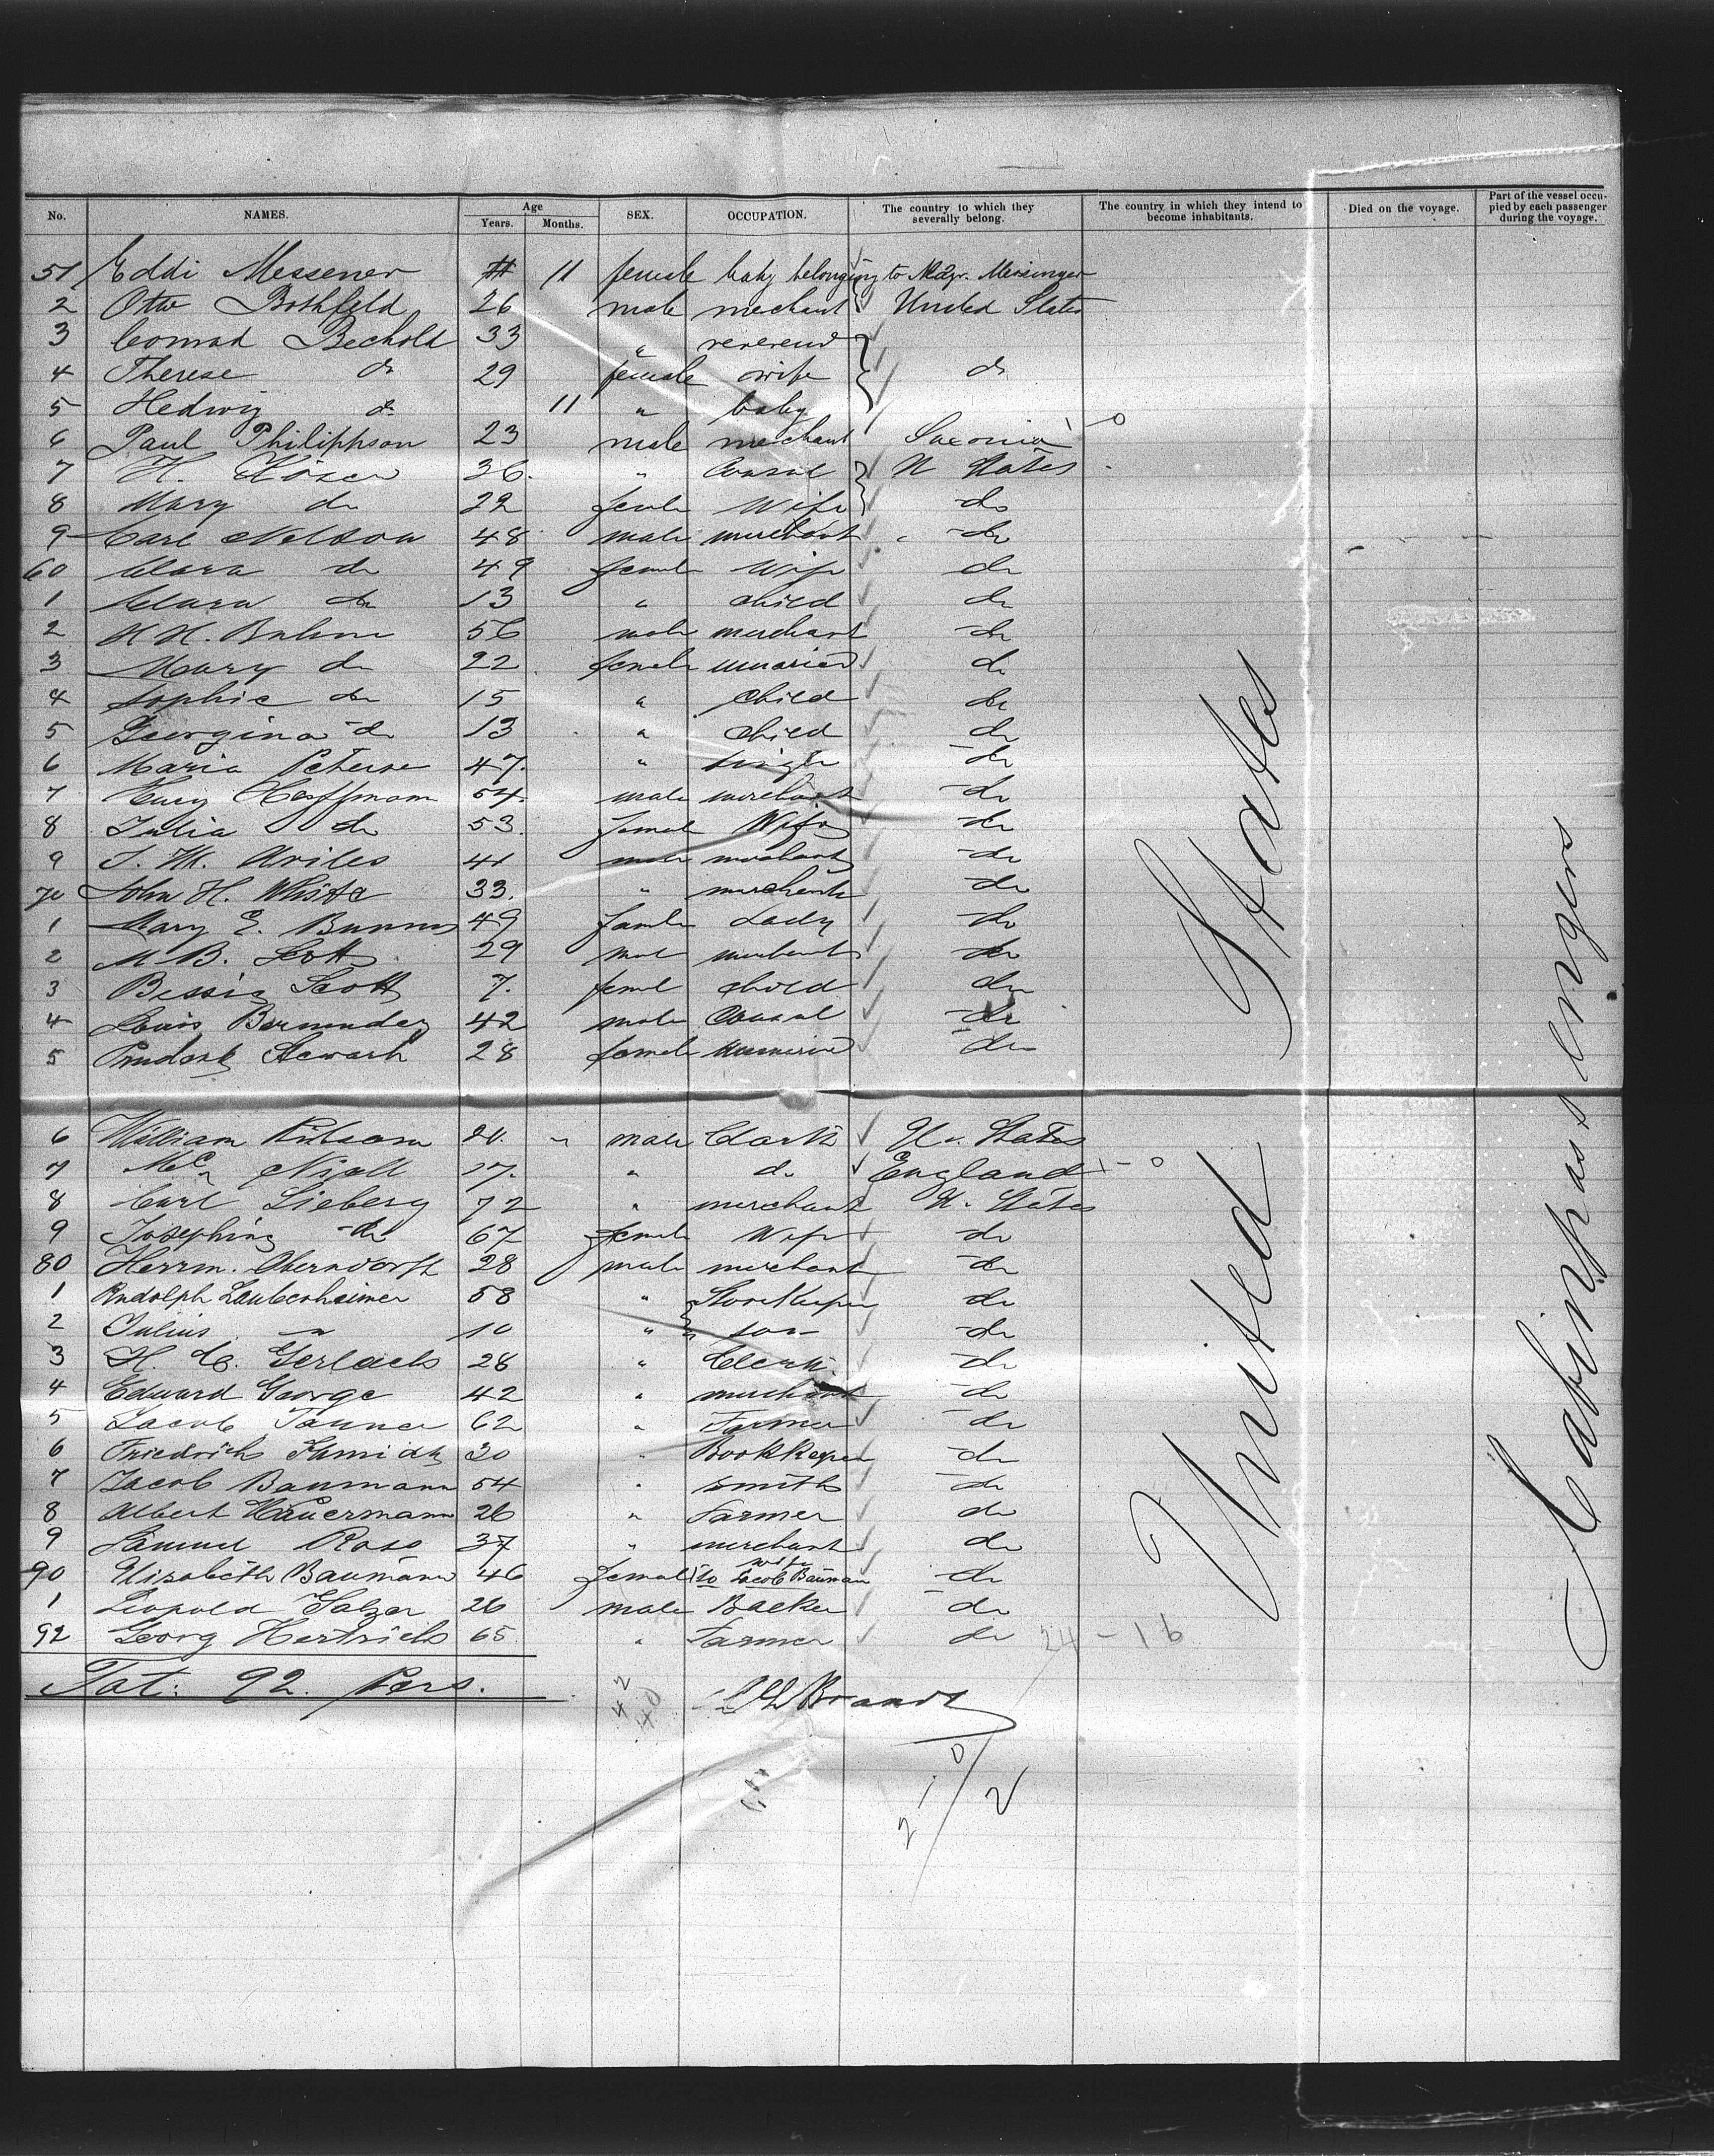 No. NAMES. Age Years. Months. SEX. OCCUPATION. The country to which they severally belong. The country in which they intend to become inhabitants. Died on the voyage. Part of the vessel occupied by each passenger during the voyage.
51 Eddi Messener 11 female baby belonging to Mdgr. Meisinger
2 Otto Bothfeld 26 male mechant United States
3 Conrad Bechold 33 " reverend
4 Therese do 29 female wife do
5 Hedwig do 11 " baby
6 Paul Philippson 23 male mechant Saxonia 1-0
7 H. 36. " Consul U States
8 Mary do 22 female Wife do
9 Carl Nelson 48 male merchant do
60 Clara do 49 female Wife do
1 Clara do 13 " child do
2 H H. 56 male merchant do
3 Mary do 22 female unmaried do
4 Sophie do 15 " Child do
5 Georgina do 13 " child do
6 Maria 47. " single do
7 Hoffmann 54 male merchant do
8 Julia do 53. female Wife do
9 41 male merchant do
70 John H. White 33. " merchant do
1 Mary E. 49 female Lady do
2 M B. Scott 29 male merchant do
3 Bessie Scott 7. femal child do
4 Louis Bermudez 42 male Consul do
5 28 female do
6 William 21. " male Clark U. States
7 Niall 17. " do England 1-0
8 Carl Lieberg 72 " merchant U. States
9 Josephine do 67 female Wife do
80 Herrm. Oberndorft 28 male merchant do
1 Rudolph Laubenheimer 58 " StoreKeeper do
2 Julius " 10 " son do
3 H. C. Gerlach 28 " Clerk do
4 Edward George 42 " merchant do
5 Jacob Tanner 62 " Farmer do
6 Friedrich 30 " Bookkeeper do
7 Jacob Baumann 54 " smith do
8 Albert 26 " Farmer do
9 Samuel Ross 37 " merchant do
90 Elisabeth Baumann 46 female wife to Jacob Baumann do
1 Leopold Salzer 26 male Backer do
92 Georg Hertrich 65 " Farmer do 24-16
Tot: 92. Pers.
Brandt
42
40
2-0/2
United States
Cabinpassengers